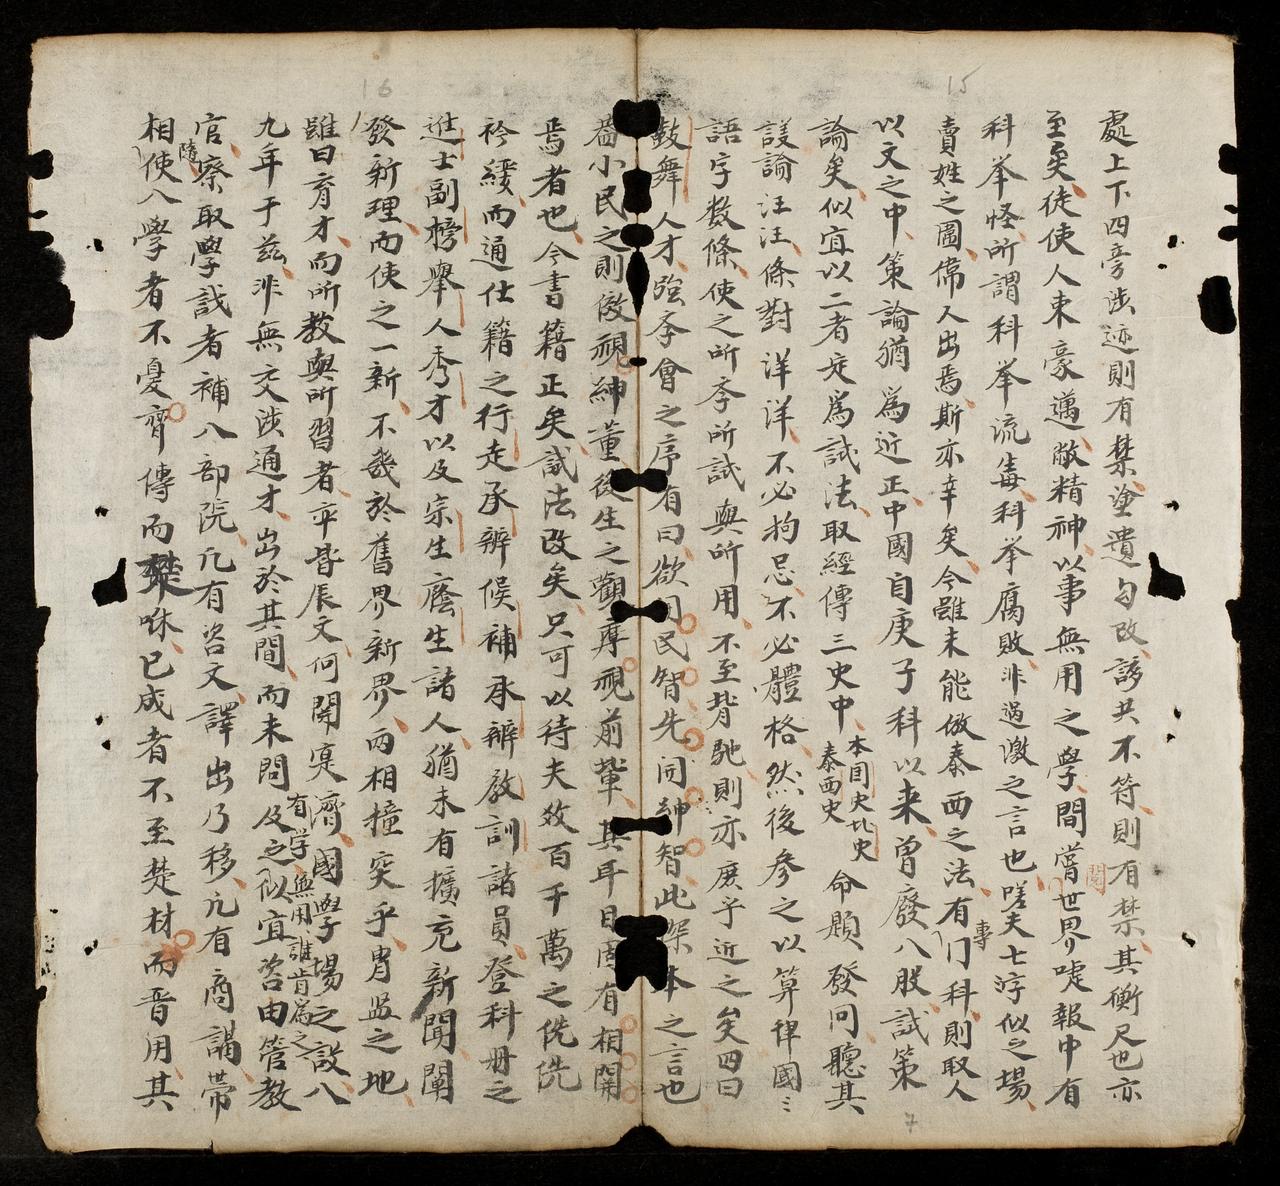 15
處上下四旁涉迹則有禁塗遺勾改諺共不符則有禁其衡尺也亦
至矣徒使人束豪邁敝精神以事無用之學間嘗世界嘵報中有
科举怪所謂科举流毒科举腐敗非過激之言也嗟夫七字似之場
賣姓之圖常人出焉斯亦幸矣今雖未能倣泰西之法有專门科則取人
以文之中策論猶為近正中國自庚子科以来曾廢八股試策
論矣似宜以二者定為試法取經傳三史中本国史北史泰西史命題發问聽其
議論汪汪條對洋洋不必拘忌不必體格然後參之以算律國ミ
語字数條使之所夲所試與所用不至背馳則亦庶乎近之矣四曰
鼓舞人才強夲會之序有曰欲開民智先開紳智此探本之言也
7
16
嗇小民之則倣視紳董後生之觀摩視前輩其耳目固有相關
焉者也今書籍正矣試法改矣只可以待夫效百千萬之侁侁
衿緩而通仕籍之行走承辨候補承辨教訓諸員登科册之
進士副榜舉人秀才以及宗生廕生諸人猶未有擴充新聞闡
發新理而使之一新不幾於舊界新界两相撞突乎胄监之地
雖曰育才而所教與所習者平昔辰文何関寔濟國學場之設八
九年于兹非無交涉通才出於其間而未問及之有学無用誰肯為之似宜咨由管教
官察隨取學試者補八部院凢有咨文譯出乃移凢有商謁帶
相使八學者不憂齊傳而楚咻已成者不至楚材而晋用其